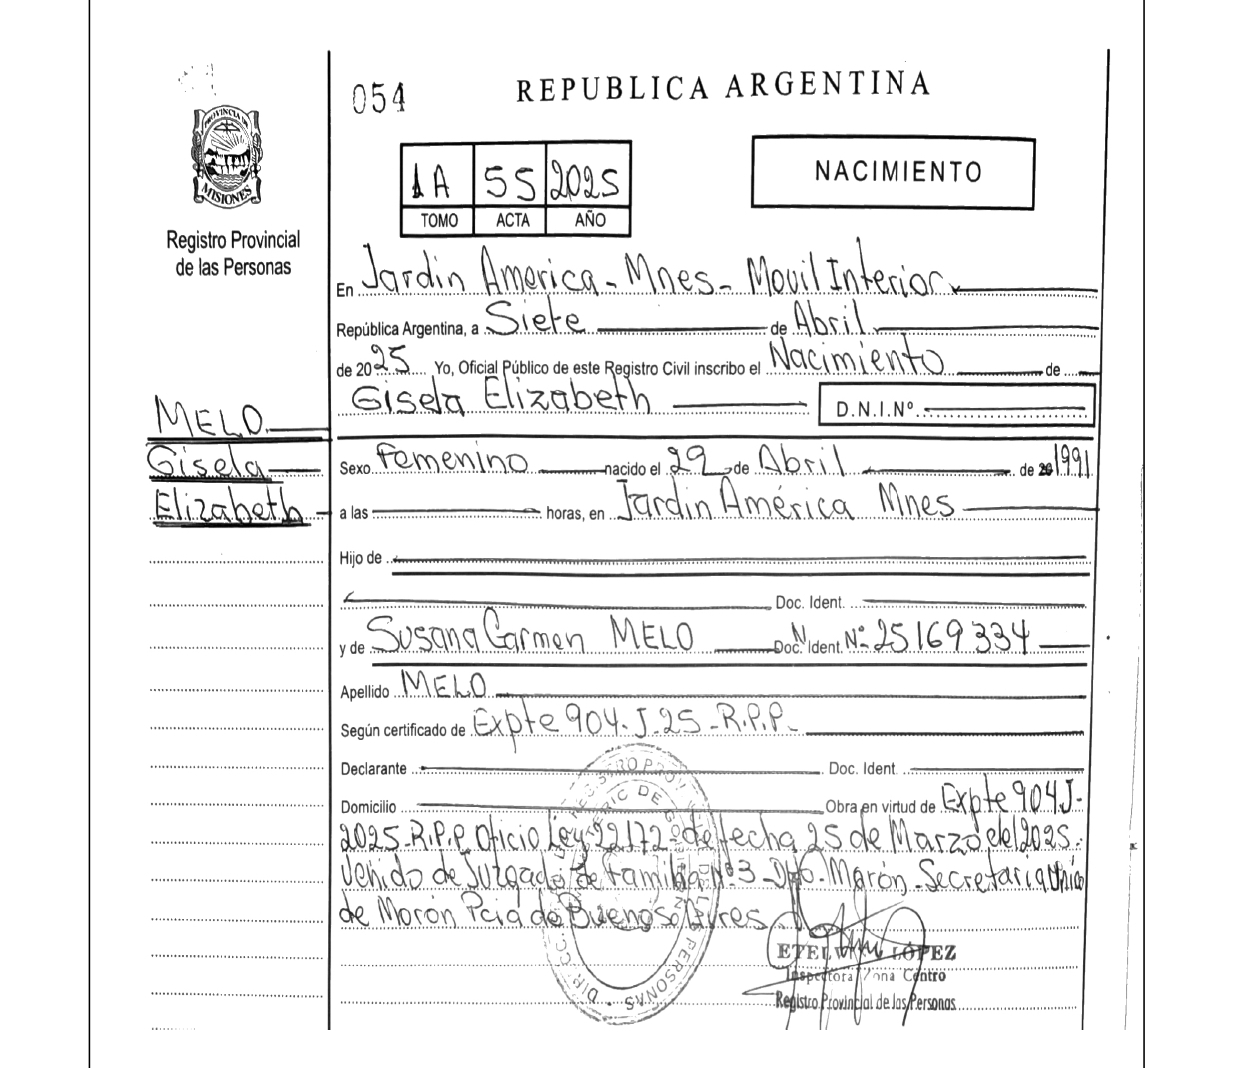 054
REPUBLICA ARGENTINA
PROVINCIA DE
MISIONES
Registro Provincial
de las Personas
1A 55 2025
TOMO ACTA AÑO
NACIMIENTO
En Jardin America - Mnes - Movil Interior
República Argentina, a Siete de Abril
de 2025 Yo, Oficial Público de este Registro Civil inscribo el Nacimiento de
Gisela Elizabeth D.N.I.Nº
MELO
Gisela
Elizabeth
Sexo Femenino nacido el 29 de Abril de 20 1991
a las horas, en Jardin América Mnes
Hijo de
Doc. Ident.
y de Susana Carmen MELO Doc. Ident. Nº 25169334
Apellido MELO
Según certificado de Expte 904-J-25-R.P.P-
Declarante Doc. Ident.
Domicilio Obra en virtud de Expte 904J-
2025-R.P.P Oficio Ley 22172 de fecha 25 de Marzo del 2025.
Venido de Juzgado de Familia Nº3-Dto. Morón-Secretaria Unica
de Morón Pcia de Buenos Aires
LÓPEZ
Inspectora Zona Centro
Registro Provincial de las Personas